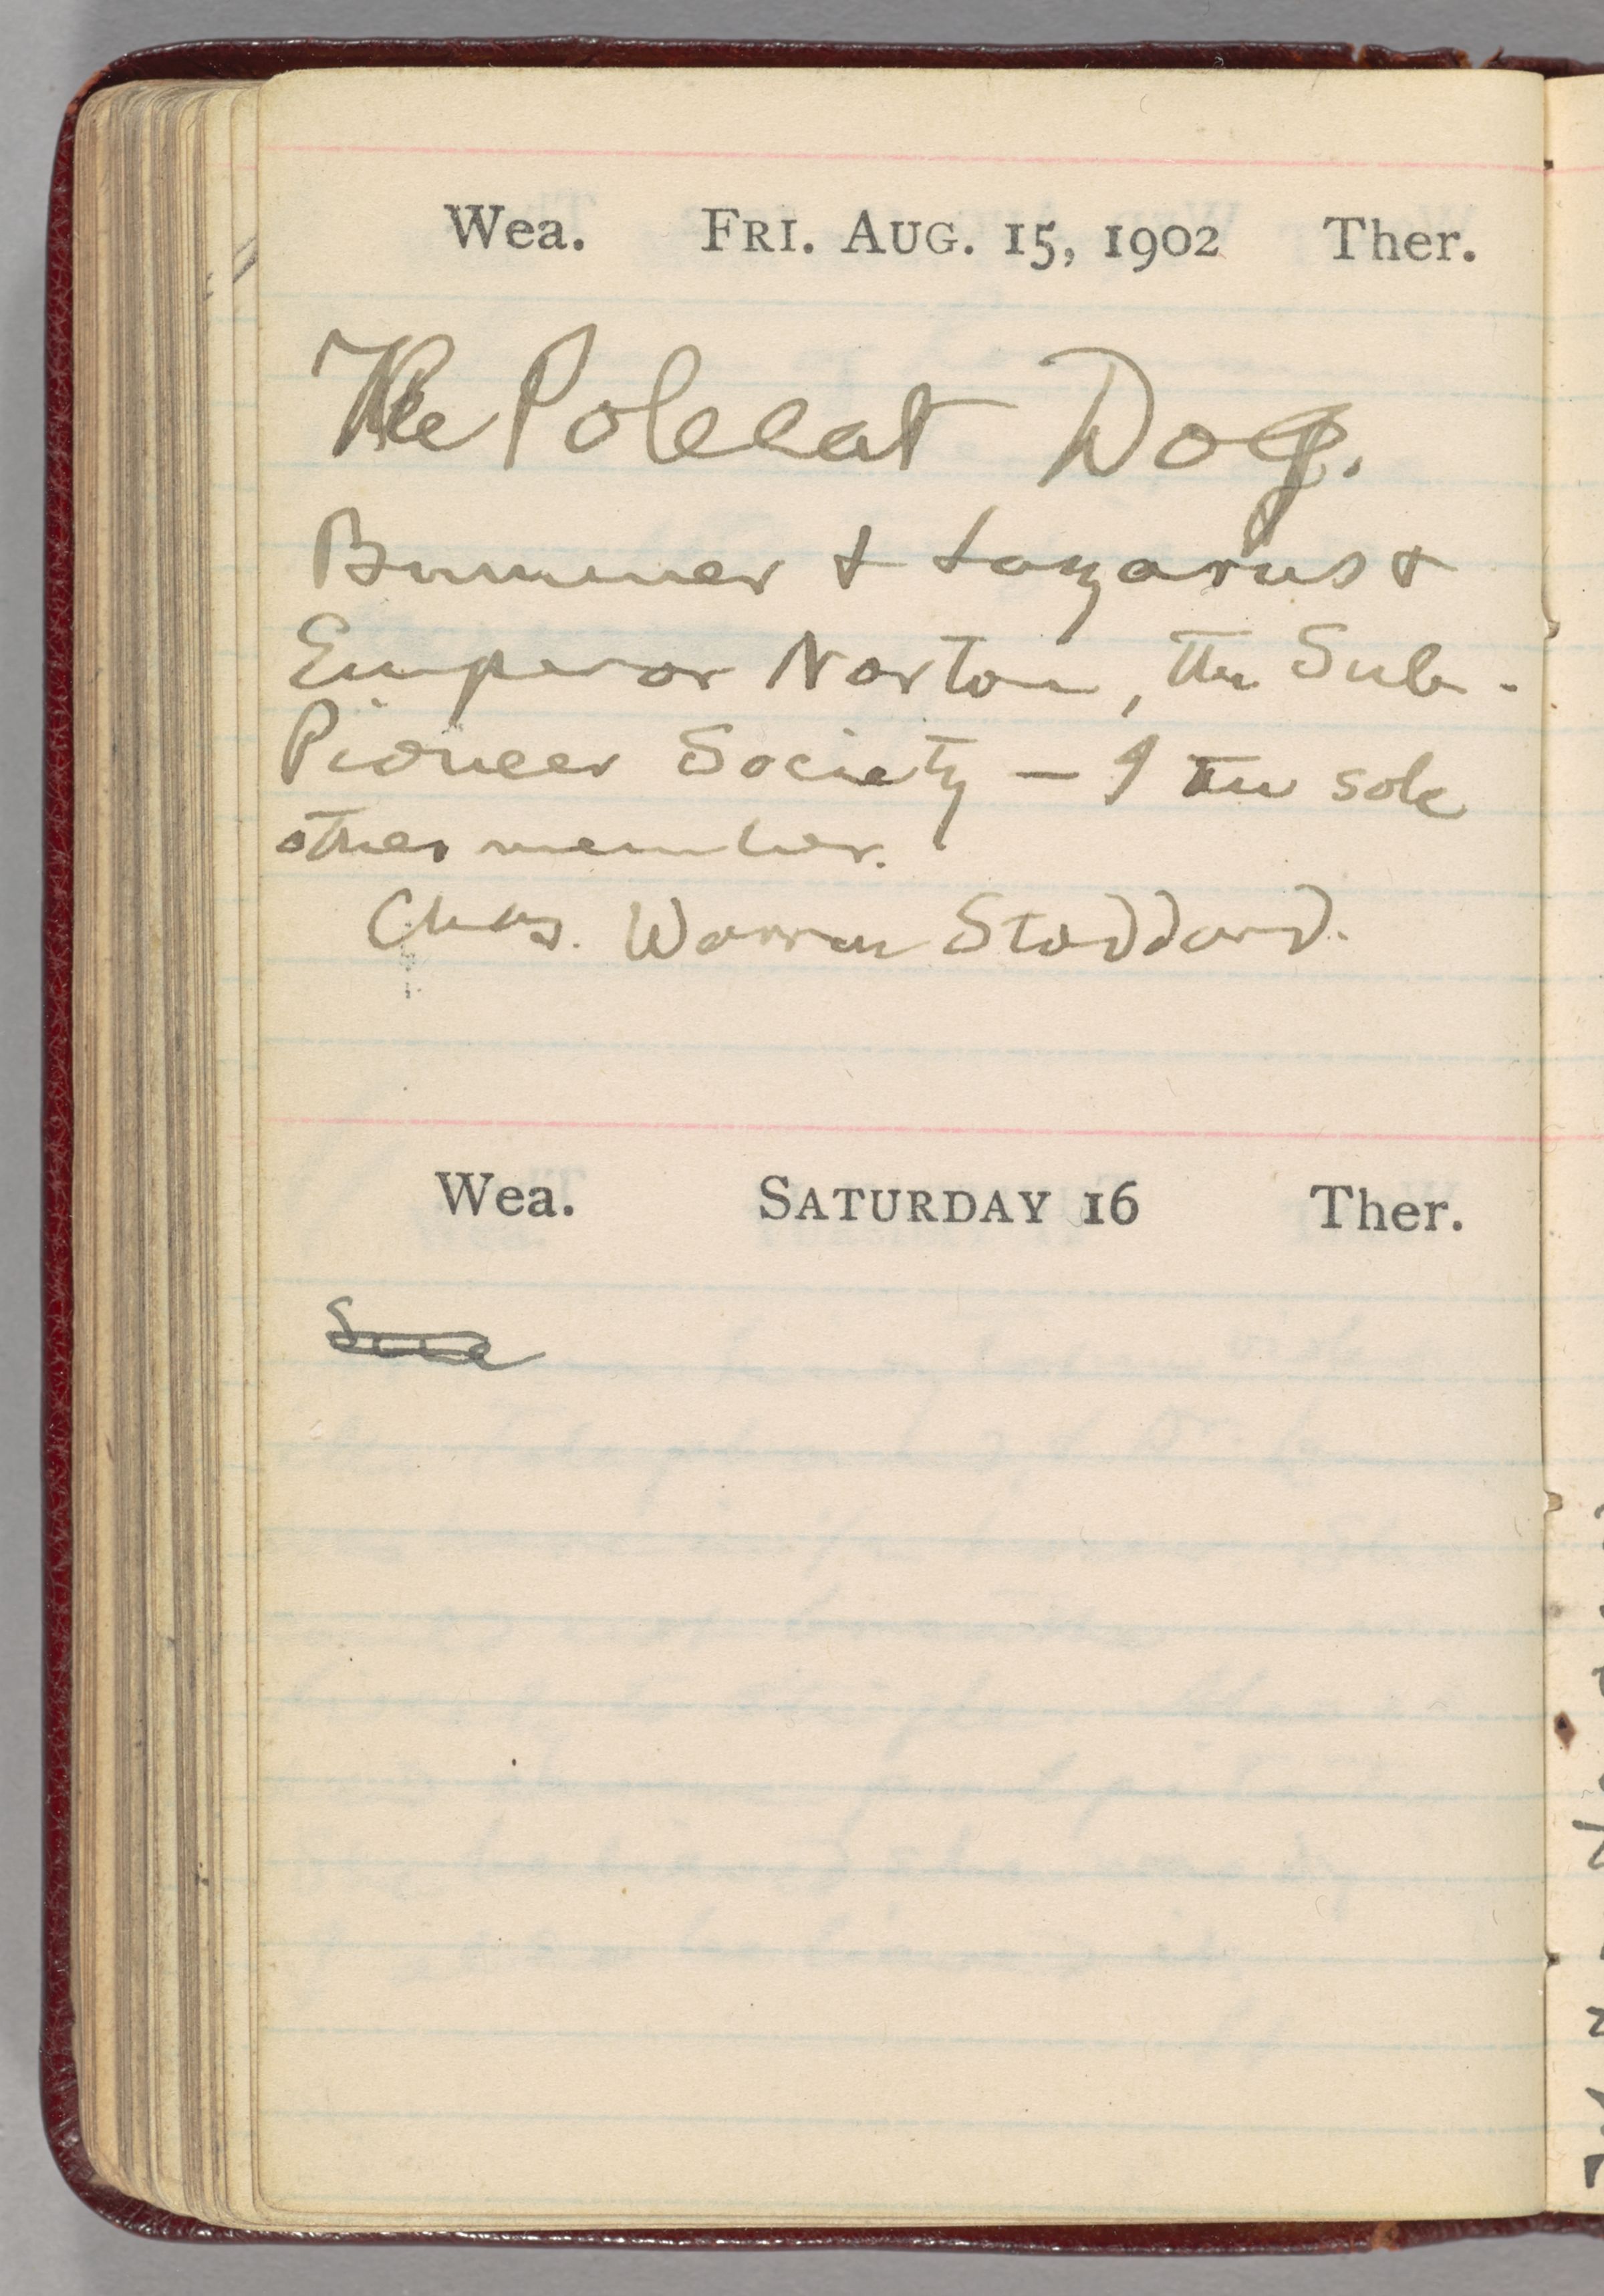 Wea. FRI. AUG. 15, 1902 Ther.
The Polecat Dog.
Bummer & Lazarus &
Emperor Norton, the Sub-
Pioneer Society — I the sole
other member.
Chas. Warren Stoddard.
Wea. SATURDAY 16 Ther.